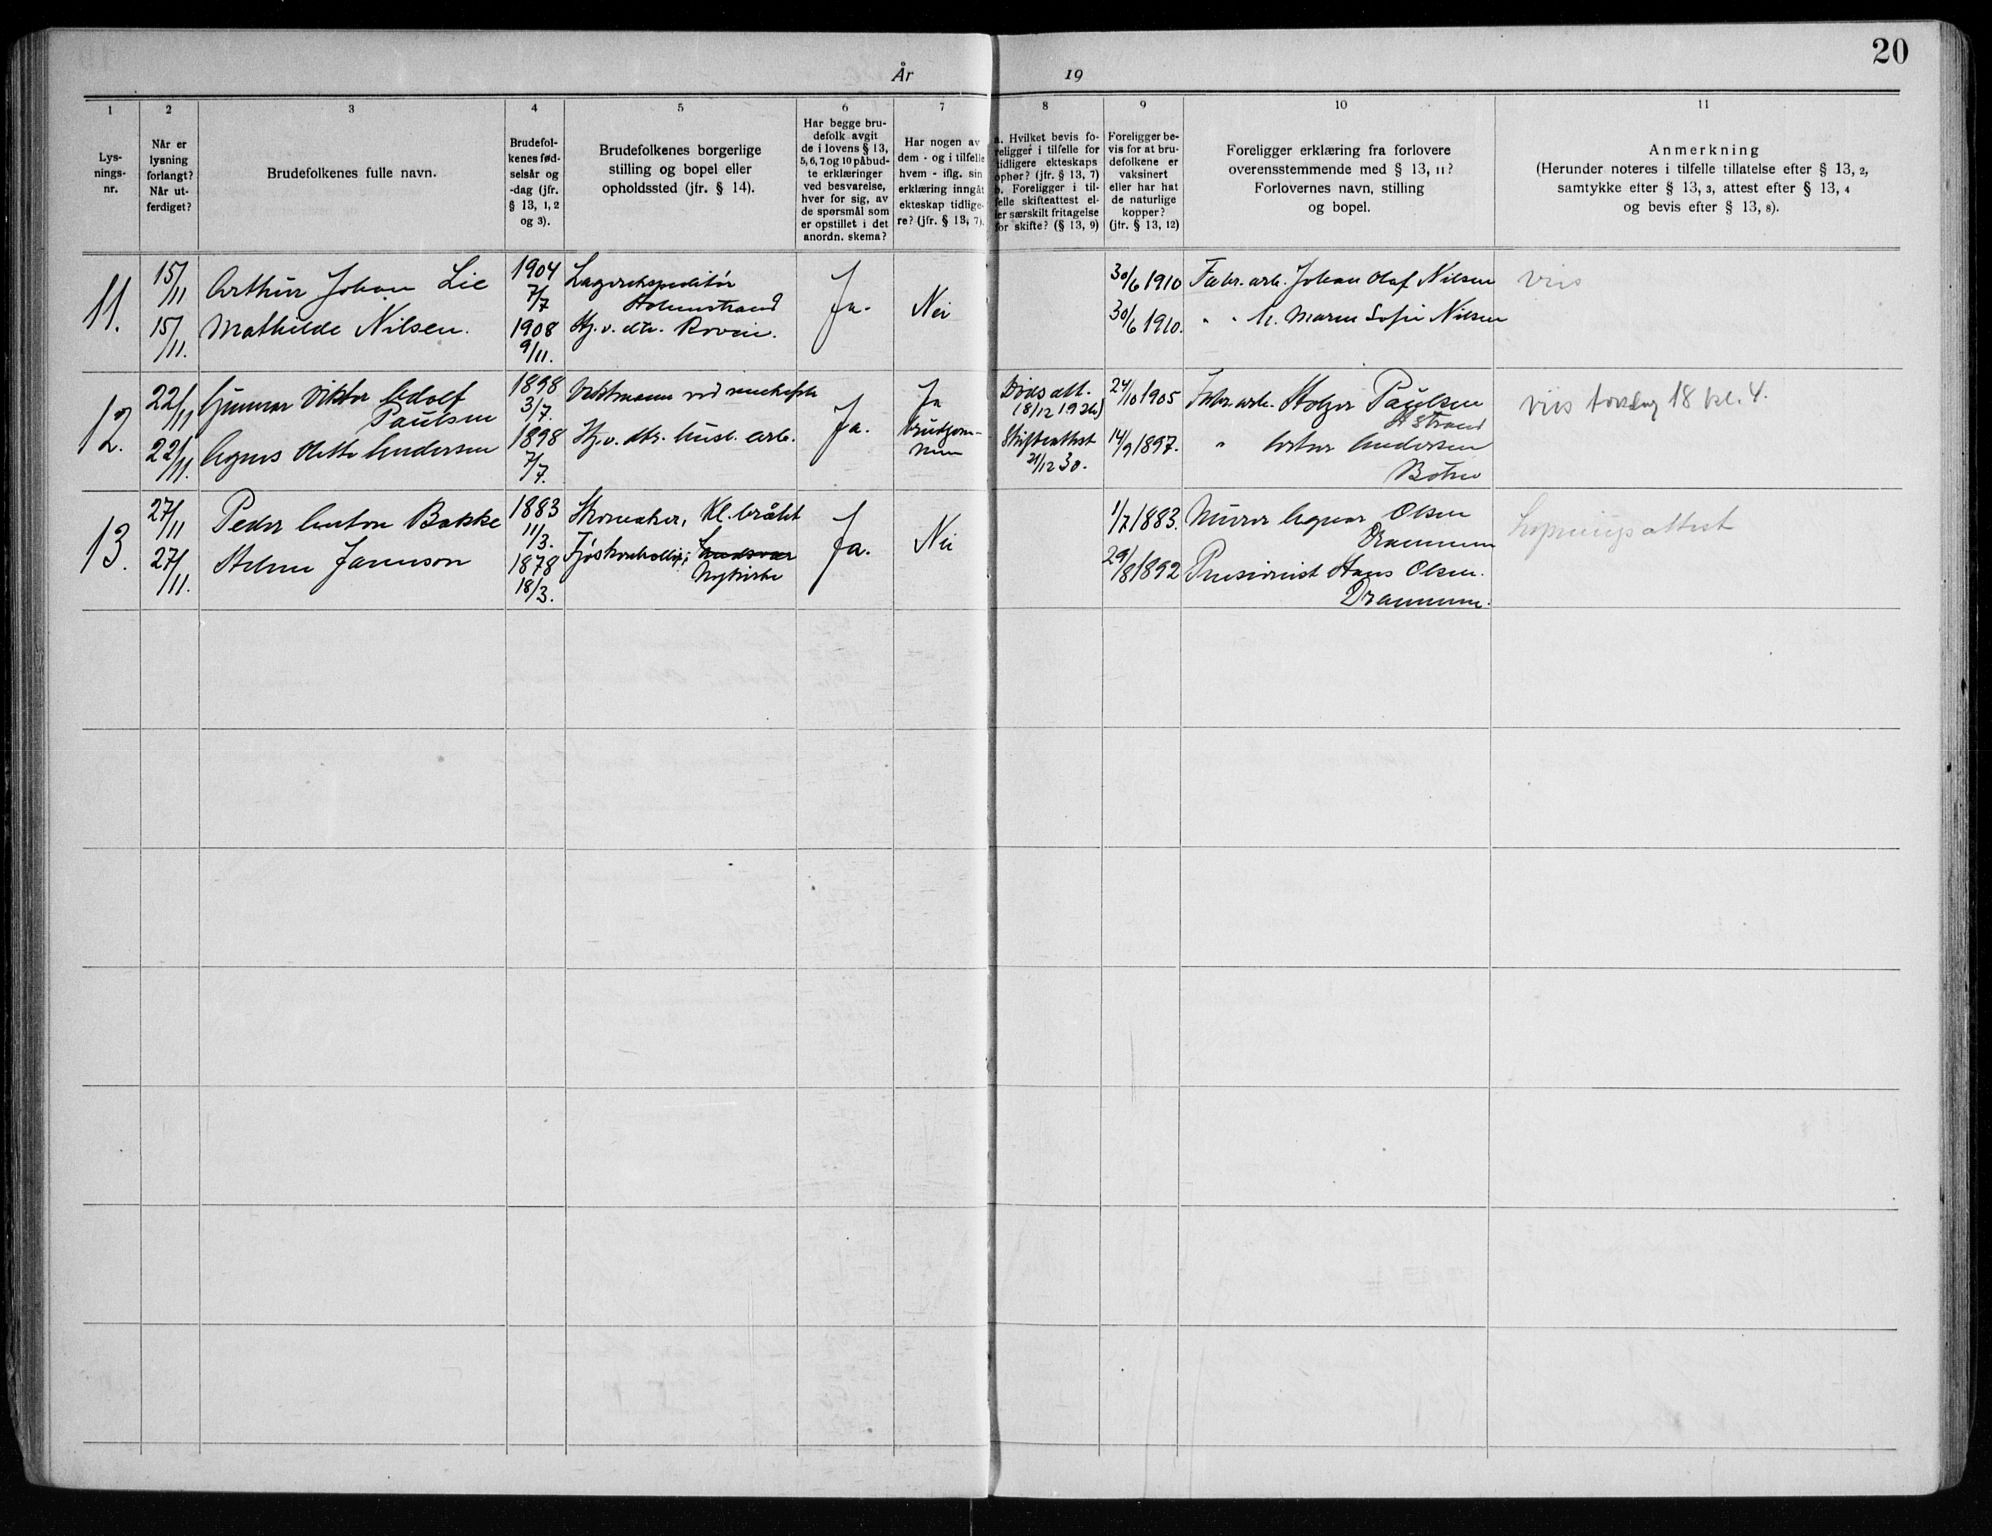 20
År 19
1 2 3 4 5 6 7 8 9 10 11
Lys-
nings-
nr.
Når er
lysning
forlangt?
Når ut-
ferdiget?
Brudefolkenes fulle navn.
Brudefol-
kenes fød-
selsår og
-dag (jfr.
§ 13, 1, 2
og 3).
Brudefolkenes borgerlige
stilling og bopel eller
opholdssted (jfr. § 14).
Har begge bru-
defolk avgit
de i lovens § 13,
5, 6, 7 og 10 påbud-
te erklæringer
ved besvarelse,
hver for sig, av
de spørsmål som
er opstillet i det
anordn. skema?
Har nogen av
dem - og i tilfelle
hvem - iflg. sin
erklæring inngåt
ekteskap tidlige-
re? (jfr. § 13, 7).
a. Hvilket bevis fo-
religger i tilfelle for
tidligere ekteskaps
ophør? (jfr. § 13, 7)
b. Foreligger i til-
felle skifteattest el-
ler særskilt fritagelse
for skifte? (§ 13, 9)
Foreligger be-
vis for at bru-
defolkene er
vaksinert
eller har hat
de naturlige
kopper?
(jfr. § 13, 12)
Foreligger erklæring fra forlovere
overensstemmende med § 13, 11?
Forlovernes navn, stilling
og bopel.
Anmerkning
(Herunder noteres i tilfelle tillatelse efter § 13, 2,
samtykke efter § 13, 3, attest efter § 13, 4
og bevis efter § 13, 8).
11.
15/11
Arthur Johan Lie
1904
7/7
Lagerekspeditør
Holmestrand
Ja.
Nei
30/6 1910
Fabr. arb. Johan Olaf Nilsen
viis
15/11.
Mathilde Nilsen.
1908
9/11.
Hj. v. dtr. Rovein.
30/6 1910.
" " M. Maren Sofie Nilsen
12.
22/11
Gunnar Viktor Adolf
Paulsen
1898
3/7.
Ja.
Ja
brudgom-
men
Døds att.
18/12 1926)
24/10 1905
Fabr. arb. Holger Paulsen
H strand
viis torsdag 18 kl. 4.
22/11.
Agnes Hette Andersen
1898
7/7.
Hj. v. dtr. husl. arb.
Skifteattest
21/12 30.
14/9 1897.
" Andersen
Botne
13.
27/11
Peder Anton Bakke
1883
11/3.
Skomaker, Kl. bråtet
Ja.
Nei
1/7 1883.
Murer Agnar Olsen
Drammen
Lysningsattest
27/11.
Helene Jammson
1878
18/3.
Nykirke
29/8 1892
Pensionist Hans Olsen.
Drammen.